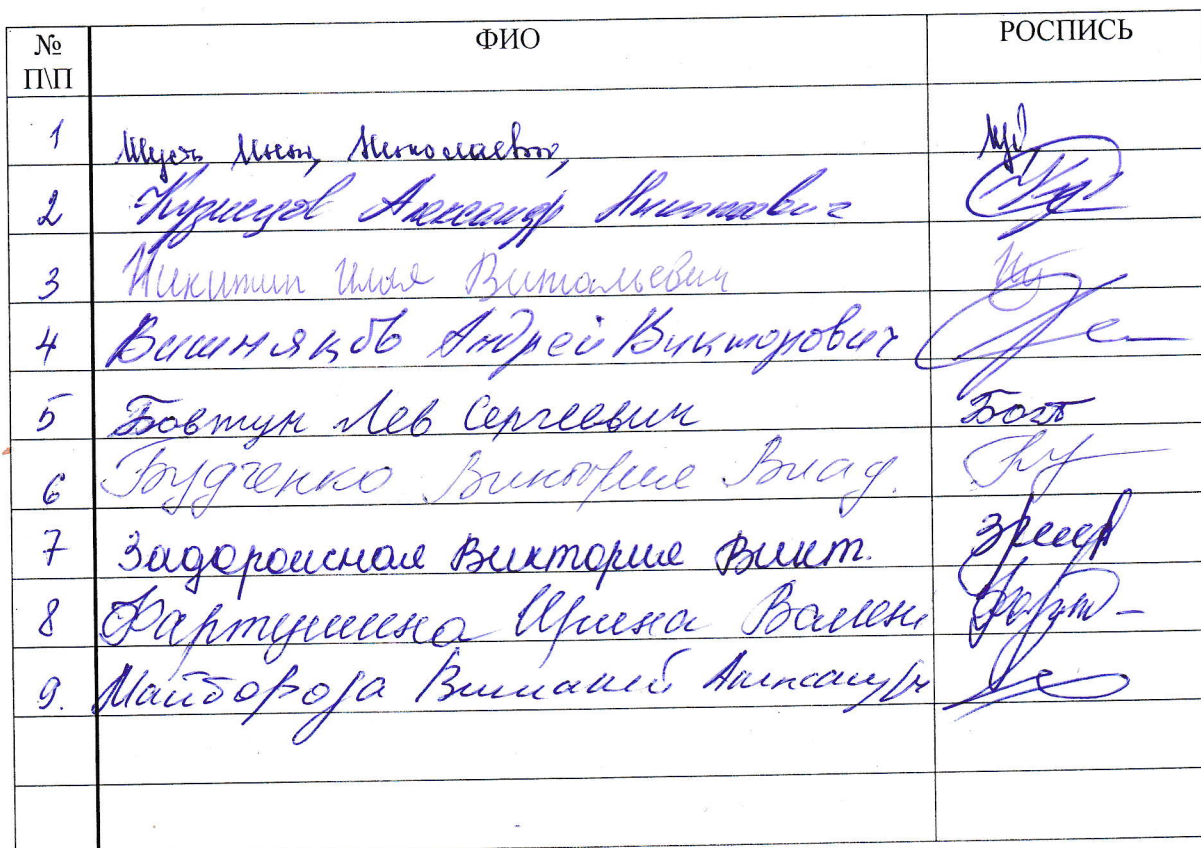 № ФИО РОСПИСЬ
П\П
1 Николаевна
2 Кузнецов Александр Николаевич
3 Никитин Илья Витальевич
4 Вишняков Андрей Викторович
5 Бовтун Лев Сергеевич Бовт
6 Будченко Виктория Влад.
7 Задорожная Виктория Викт.
8 Фартушина Ирина Вален
9. Майборода Виталий Александр